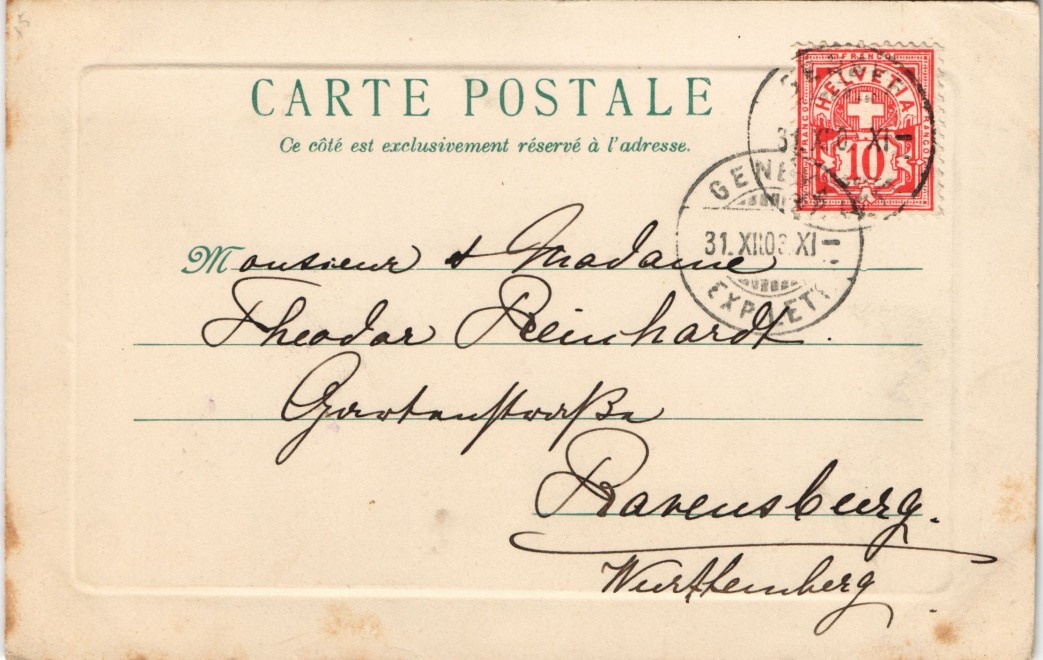 CARTE POSTALE
Ce côté est exclusivement réservé à l'adresse.
FRANCO
HELVETIA
FRANCO
FRANCO
10
31. XII.03. XI-
GENÈ
EXP. LET
Monsieur & Madame
Theodor Reinhardt.
Gartenstraße
Ravensburg.
Württemberg